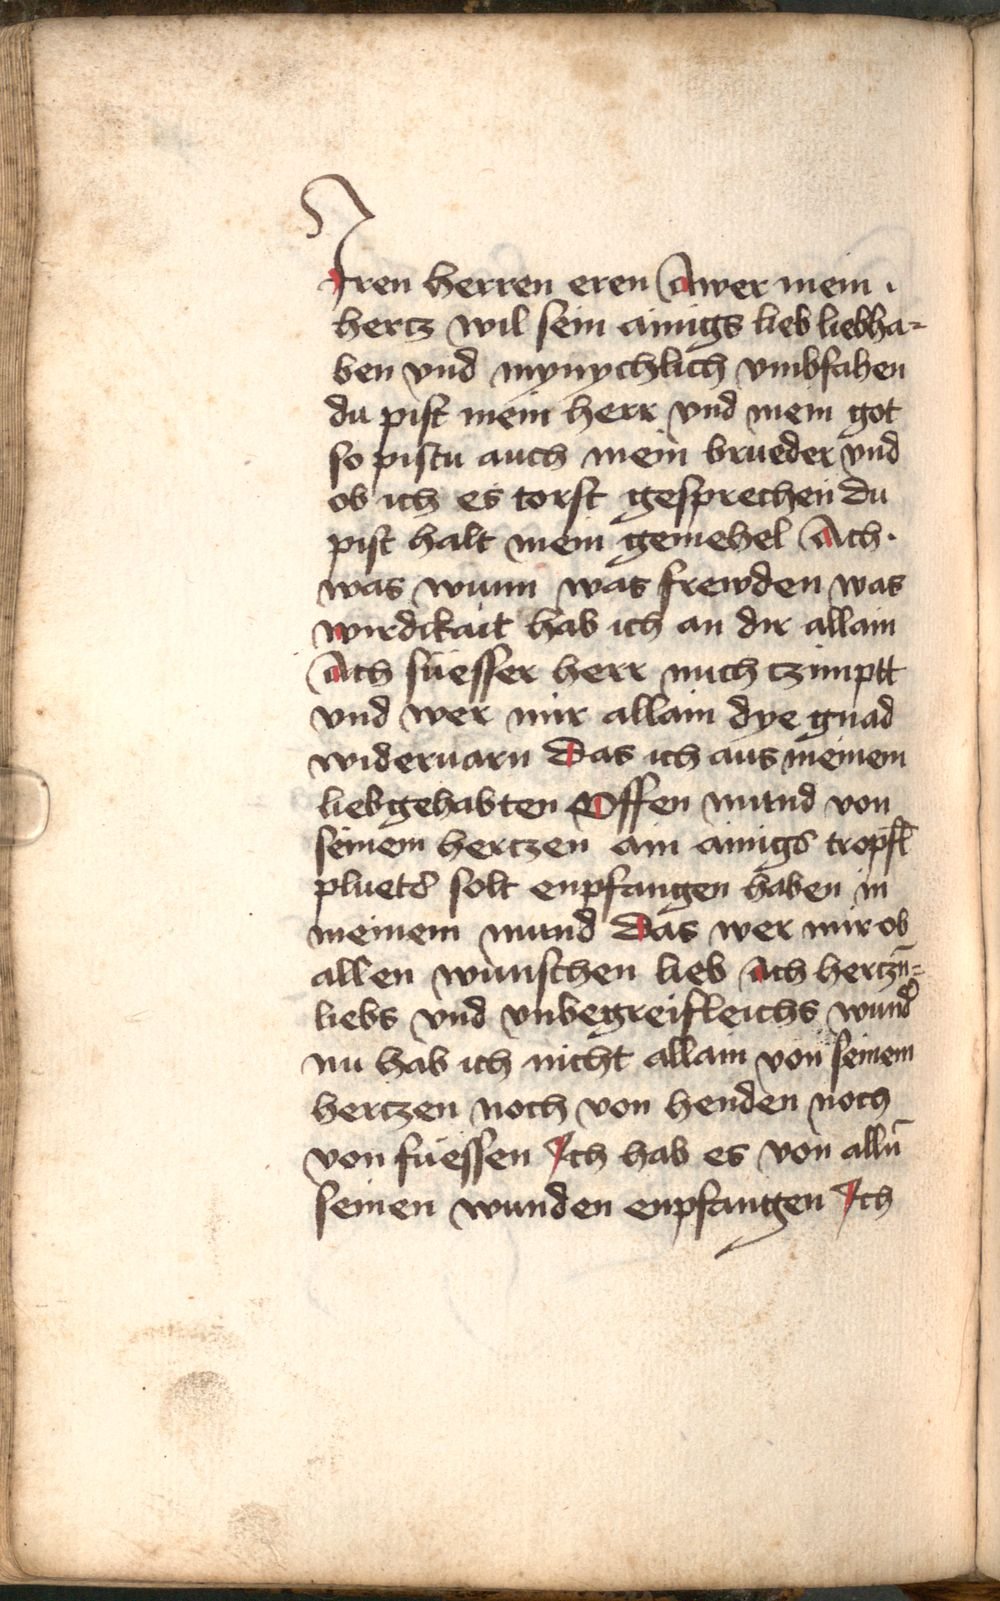 Iren herren eren Awer mein ·
hertz wil sein ainigs lieb liebha-
ben vnd mynychlich vmbfahen
du pist mein herr vnd mein got
so pistu auch mein brueder vnd
ob ich es torst gesprechen du
pist halt mein gemehel Ach ·
was wunn was frewden was
wirdikait hab ich an dir allain
Ach süesser herr mich czimptt
vnd wer mir allain dye gnad
wideruarn Das ich aus meinem
liebgehabten Offen mund von
seinem hertzen ain ainigs tropfl
pluets solt enpfangen haben in
meinem mund Das wer mir ob
allen wunschen lieb Ach hertzn̄-
liebs vnd vnbegreifleichs wund
nu hab ich nicht allain von seinem
hertzen noch von henden noch
von füessen Ich hab es von alln̄
seinen wunden enpfangen Ich